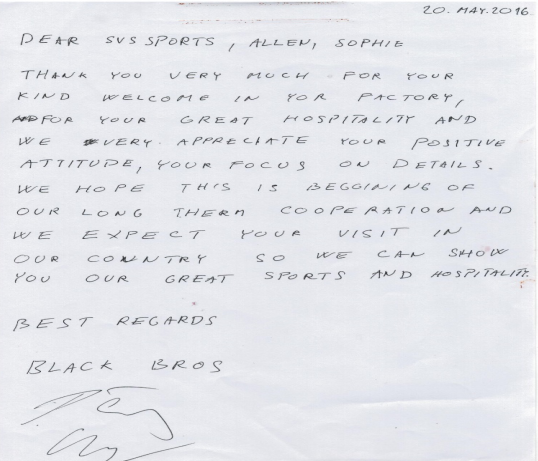 20. MAY. 2016
DEAR SVS SPORTS, ALLEN, SOPHIE
THANK YOU VERY MUCH FOR YOUR
KIND WELCOME IN YOR FACTORY,
FOR YOUR GREAT HOSPITALITY AND
WE VERY APPRECIATE YOUR POSITIVE
ATTITUDE, YOUR FOCUS ON DETAILS.
WE HOPE THIS IS BEGGINING OF
OUR LONG THERM COOPERATION AND
WE EXPECT YOUR VISIT IN
OUR COUNTRY SO WE CAN SHOW
YOU OUR GREAT SPORTS AND HOSPITALITY.
BEST REGARDS
BLACK BROS